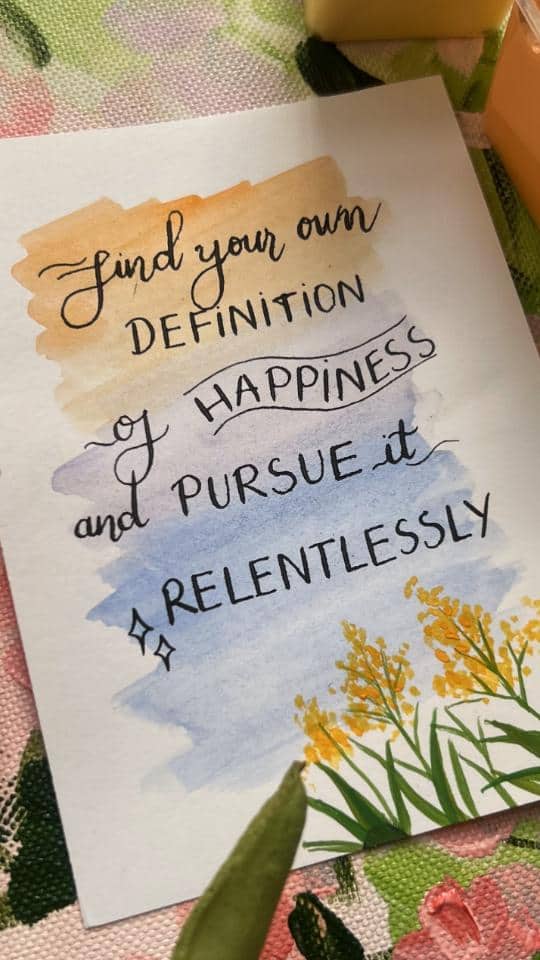 Find your own
DEFINITION
of HAPPINESS
and PURSUE it
RELENTLESSLY